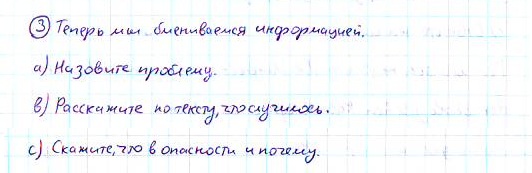 ③ Теперь мы бмениваемся информацией.
а) Назовите проблему.
в) Расскажите по тексту, что случилось.
с) Скажите, что в опасности и почему.